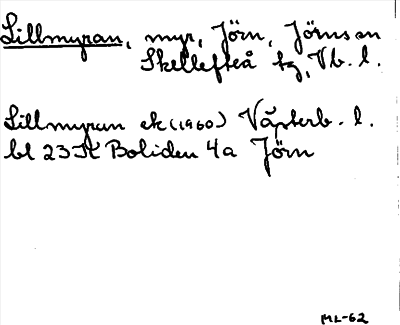 Lillmyran, myr, Jörn, Jörns sn
Skellefteå tg, Vb. l.
Lillmyran ek (1960) Västerb. l.
bl 23 K Boliden 4a Jörn
ML-62